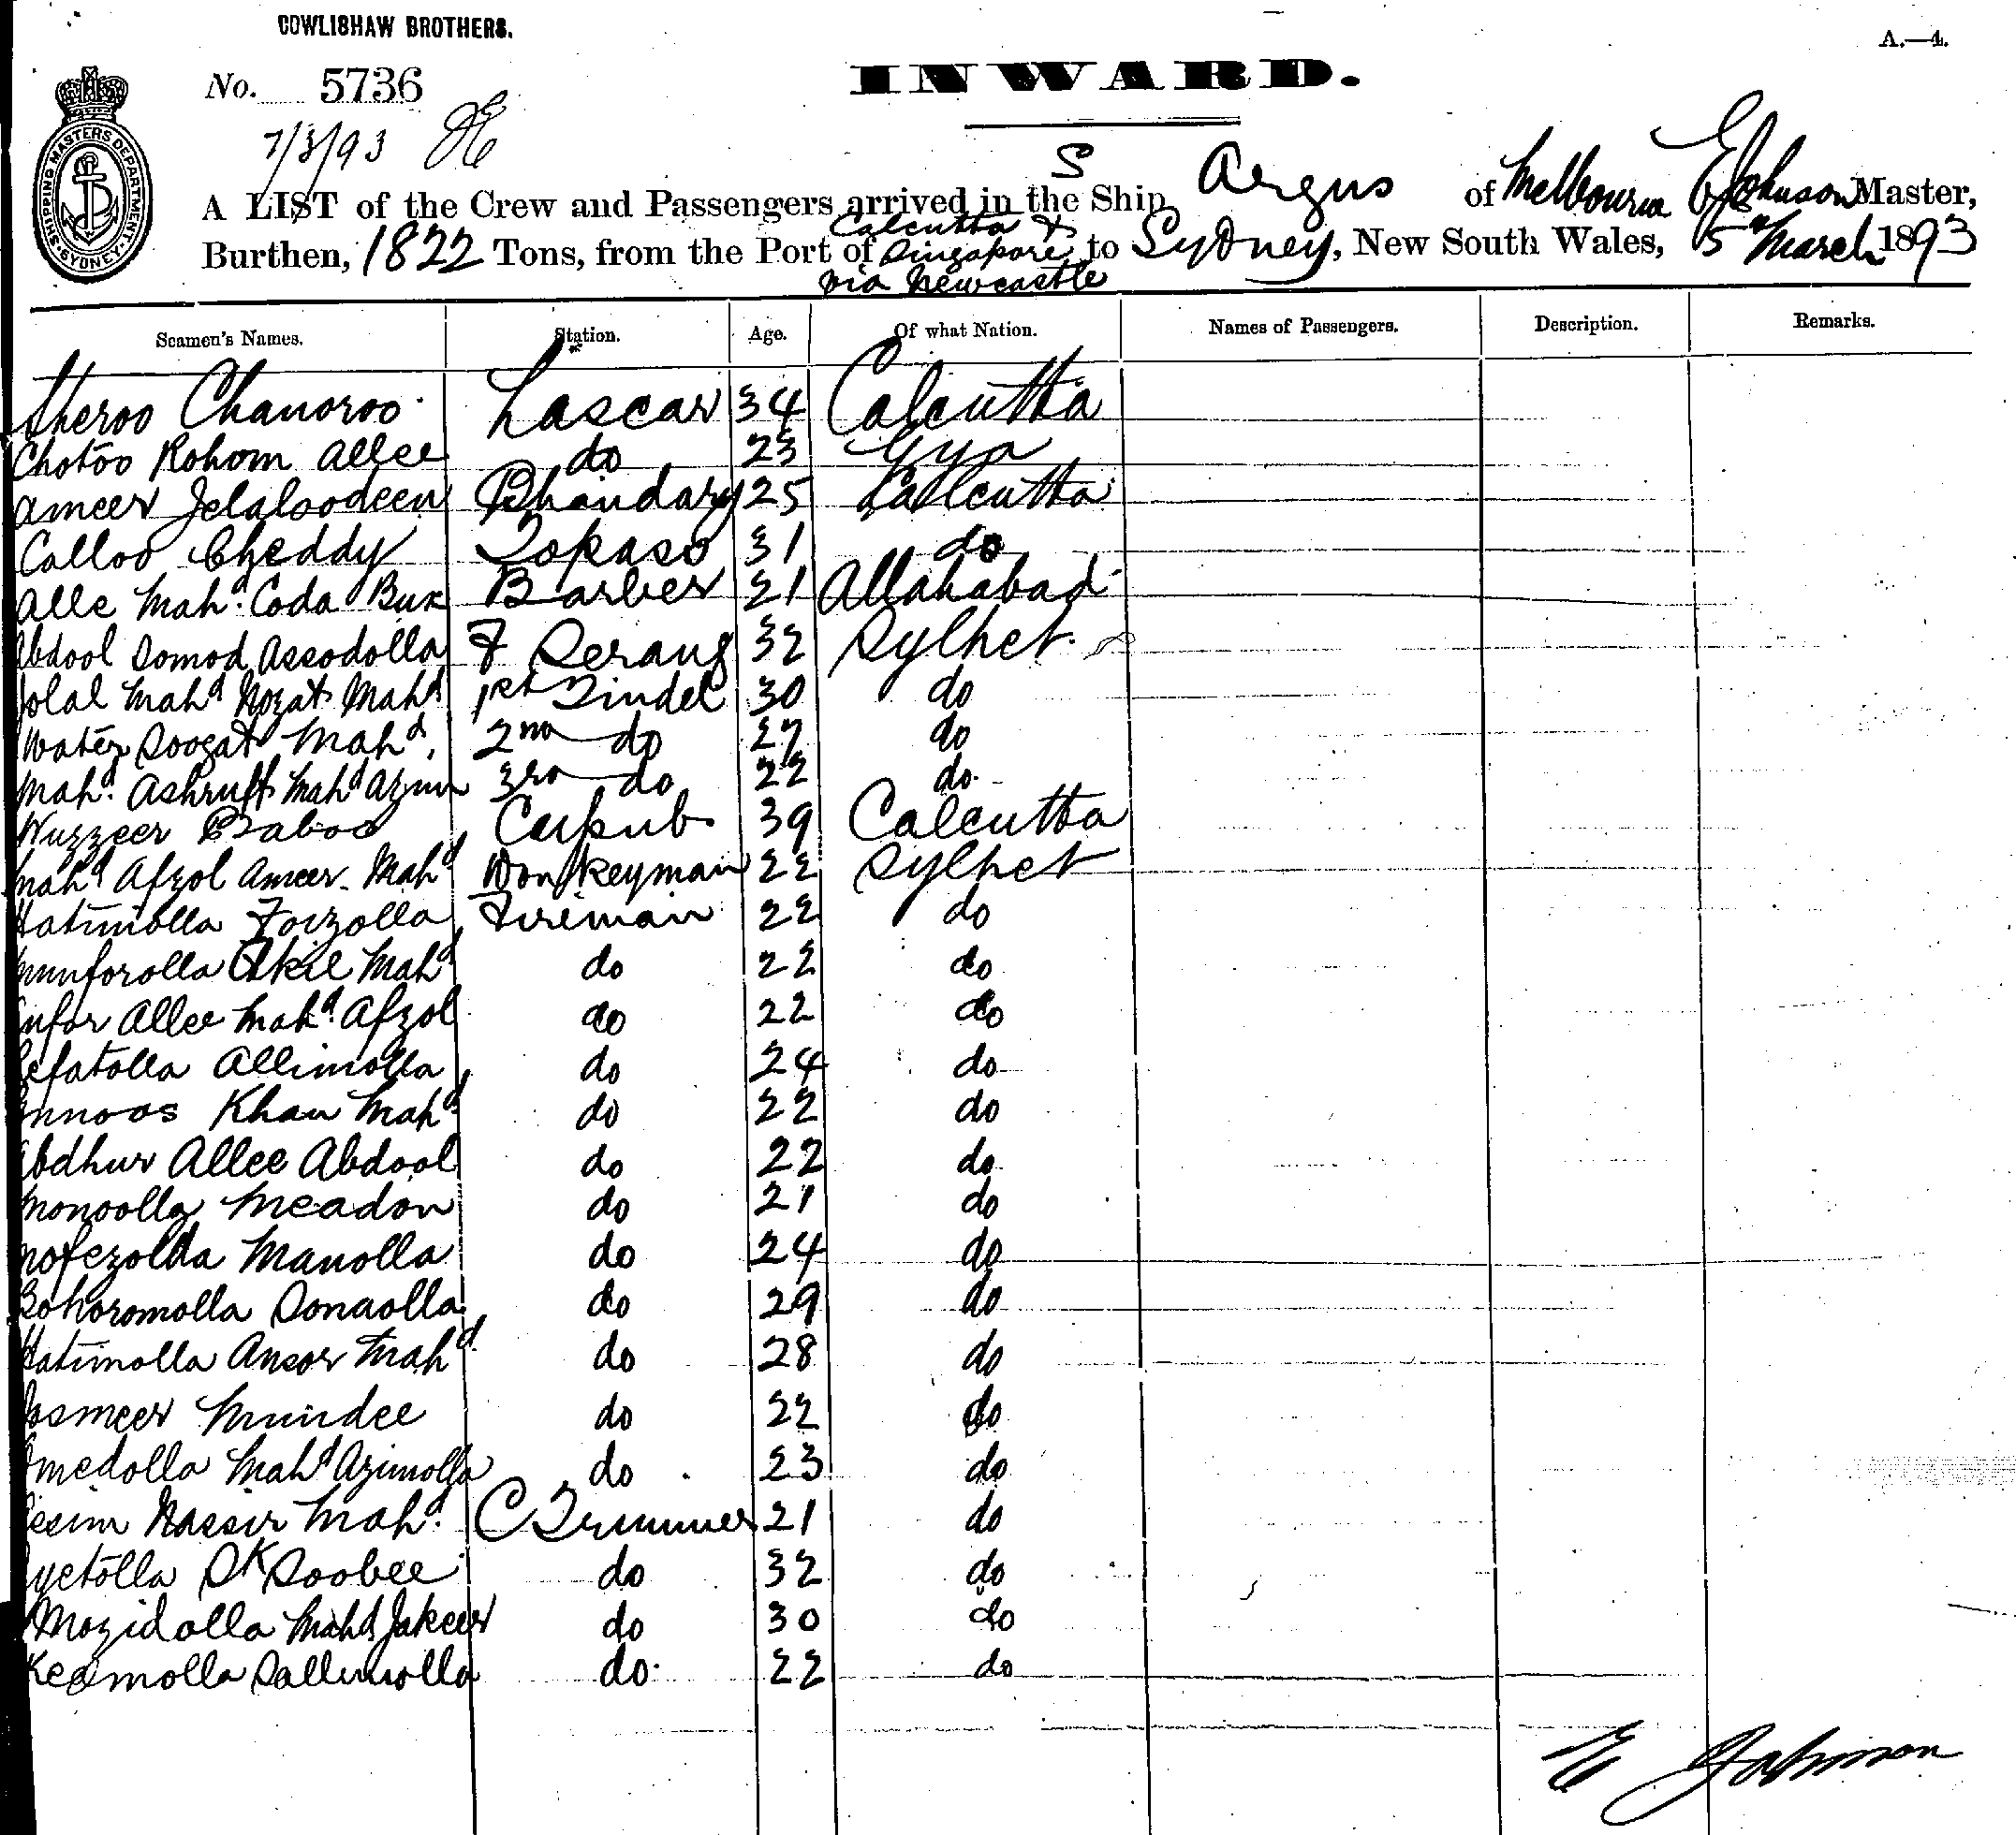 COWLISHAW BROTHERS.
A.—4.
No. 5736
INWARD.
7/3/93
SHIPPING MASTERS DEPARTMENT SYDNEY
A LIST of the Crew and Passengers arrived in the Ship S Argus of Melbourne E Johnson Master,
Burthen, 1822 Tons, from the Port of Calcutta & Singapore via Newcastle to Sydney, New South Wales, 5th March 1893
Seamen's Names. Station. Age. Of what Nation. Names of Passengers. Description. Remarks.
Sheroo Chamoroo Lascar 34 Calcutta
Chotoo Rohom Allee do 23 Gya
Ameer Jelaloodeen Bhandary 25 Calcutta
Calloo Cheddy Topaso 31 do
Alle Mahd. Coda Bux Barber 21 Allahabad
Abdool Somod Assodolla F Serang 32 Sylhet
Jolal Mahd Nozat Mahd 1st Tindel 30 do
Water Soogat Mahd. 2nd do 27 do
Mahd. Ashruff Mahd Azim 3rd do 22 do
Wuzzeer Baboo Cassub 39 Calcutta
Mahd Afzol Ameer Mahd Donkeyman 22 Sylhet
Hatimolla Foizolla Fireman 22 do
Munforolla Akil Mahd do 22 do
Allee Mahd. Afzol do 22 do
Allimolla do 24 do
Khan Mahd do 22 do
Abdhur Allee Abdool do 22 do
Monoolla Meadon do 21 do
Mofezolla Manolla do 24 do
Bohoromolla Sonaolla do 29 do
Hatimolla Ansor Mahd do 28 do
Mundee do 22 do
Omedolla Mahd Azimolla do 23 do
Nassir Mahd. C Trimmer 21 do
Sk Soobee do 32 do
Mozidolla Mahd Jakeer do 30 do
Keamolla Sallimolla do 22 do
E Johnson